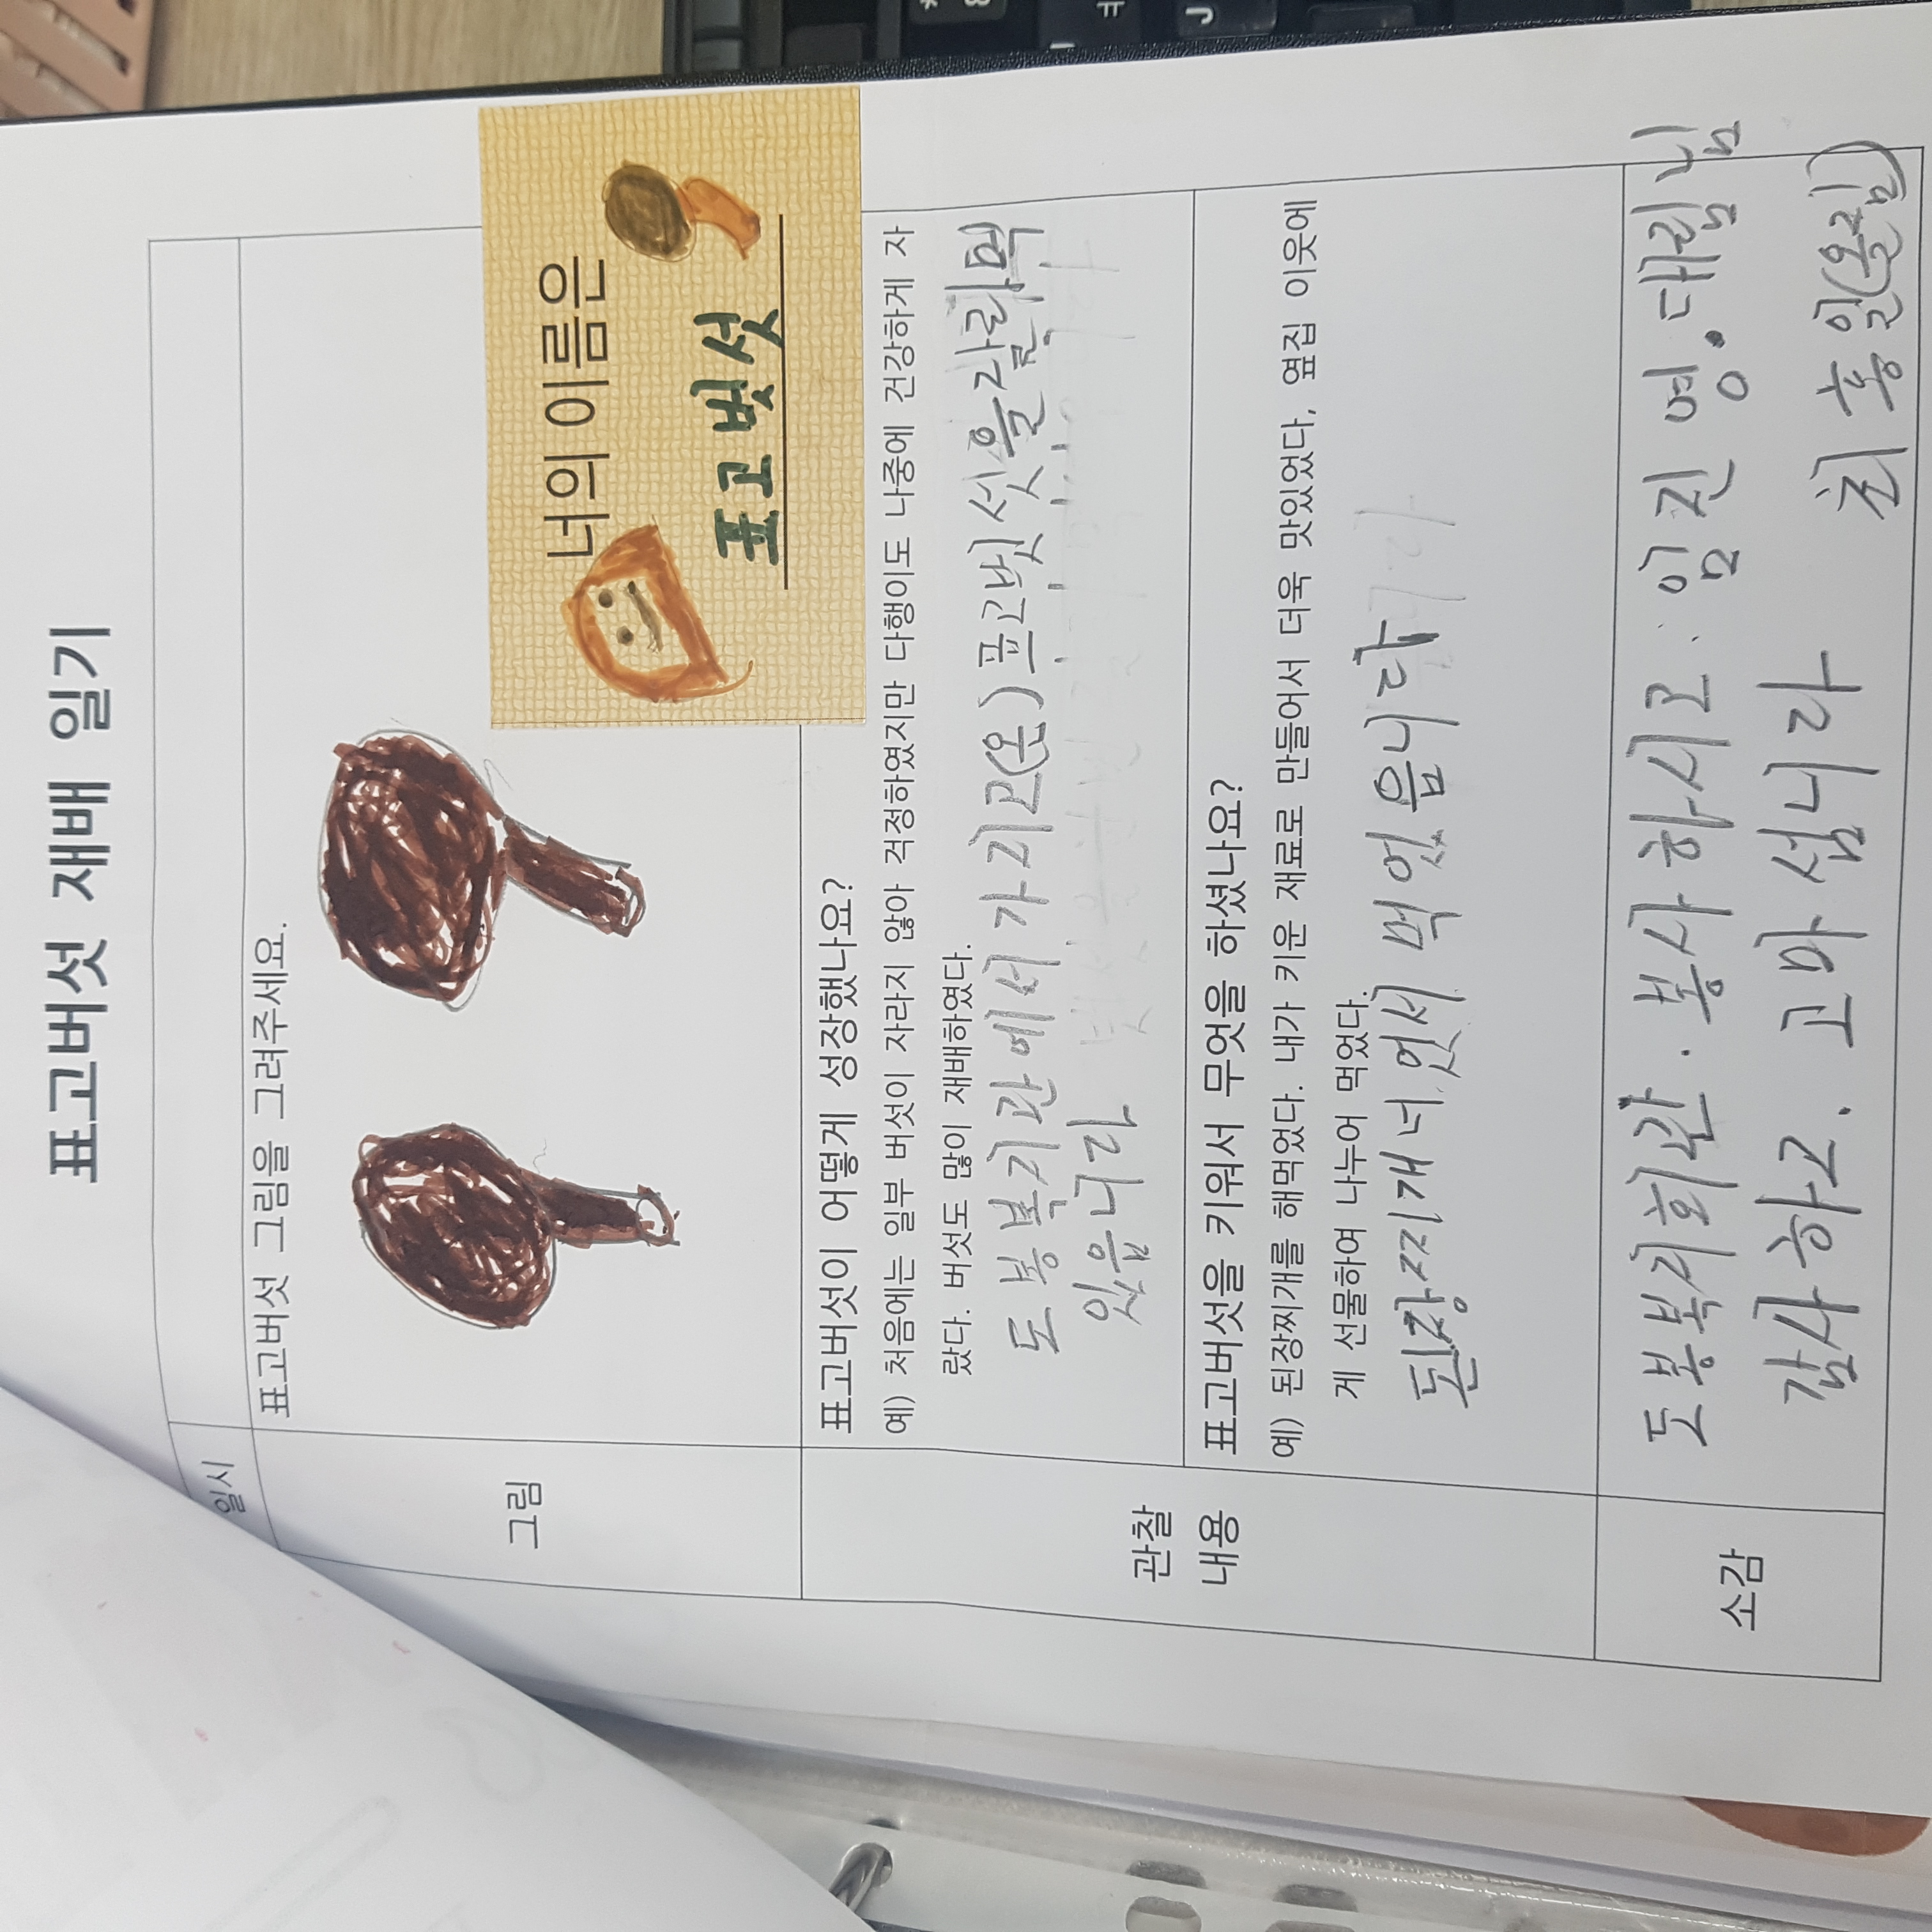 표고버섯 재배 일기
일시
그림
표고버섯 그림을 그려주세요.
너의 이름은
표고벗섯
관찰
내용
표고버섯이 어떻게 성장했나요?
예) 처음에는 일부 버섯이 자라지 않아 걱정하였지만 다행이도 나중에 건강하게 자
랐다. 버섯도 많이 재배하였다.
도봉복지관에서 가지고(온) 표고벗섯을 잘
있읍니다
표고버섯을 키워서 무엇을 하셨나요?
예) 된장찌개를 해먹었다. 내가 키운 재료로 만들어서 더욱 맛있었다, 옆집 이웃에
게 선물하여 나누어 먹었다.
된장찌개 너었서 먹었읍니다
소감
도봉복지회관. 봉사하시고
감사하고. 고마섭니다
J